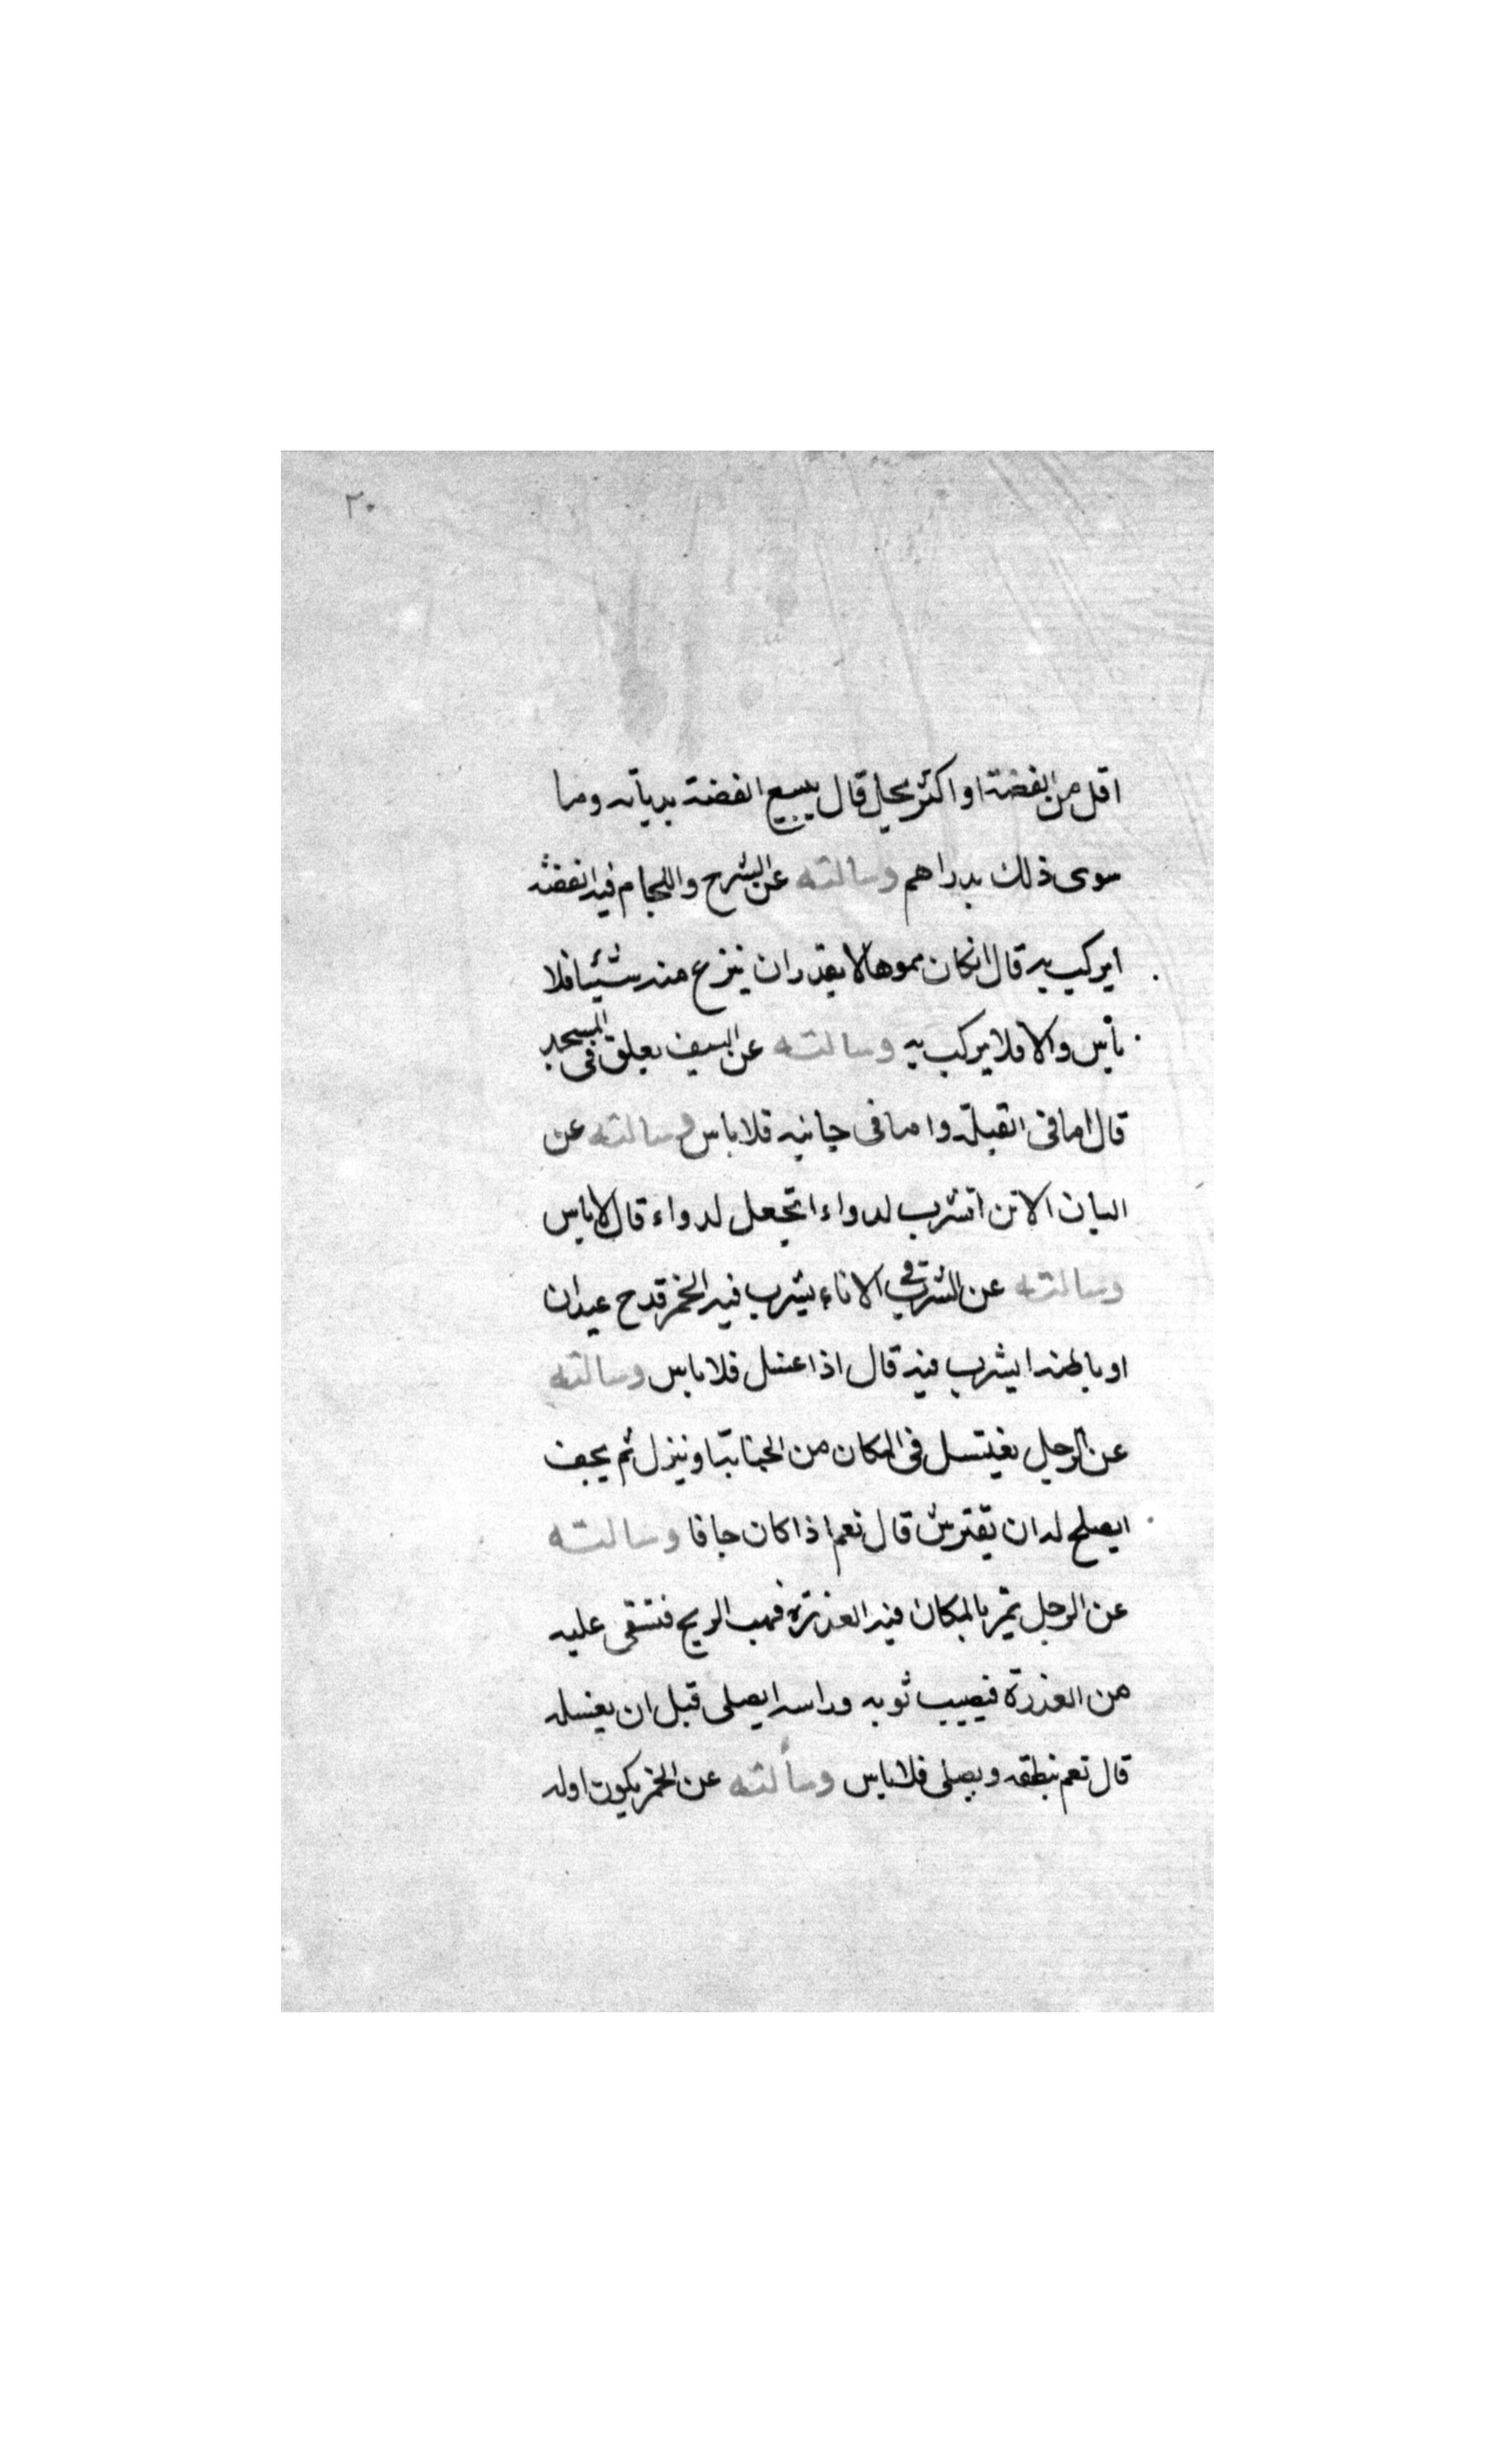 ٢٠
اقل من الفضة او اكثر يحل قال يبيع الفضة بدنانير وما
سوى ذلك بدراهم وسالته عن السرج واللجام فيه الفضة
ايركب به قال ان كان مموها لا يقدر ان ينزع منه شيئا فلا
بأس والا فلا يركب به وسالته عن السيف يعلق فى المسجد
قال اما فى القبلة واما فى جانبه فلا باس وسالته عن
البان الاتن اتشرب لدواء اتجعل لدواء قال لا باس
وسالته عن الشرب فى الاناء يشرب فيه الخمر قدح عيدان
او باطهند ايشرب فيه قال اذا غسل فلا باس وسالته
عن الرجل يغتسل فى المكان من الجنابة او ينزل ثم يجف
ايصلح له ان يفترش قال نعم اذا كان جافا وسالته
عن الرجل يمر بالمكان فيه العذرة فهب الريح فتسقى عليه
من العذرة فيصيب ثوبه وراسه ايصلى قبل ان يغسله
قال نعم ويصلى فلا باس وسألته عن الخمر يكون اوله